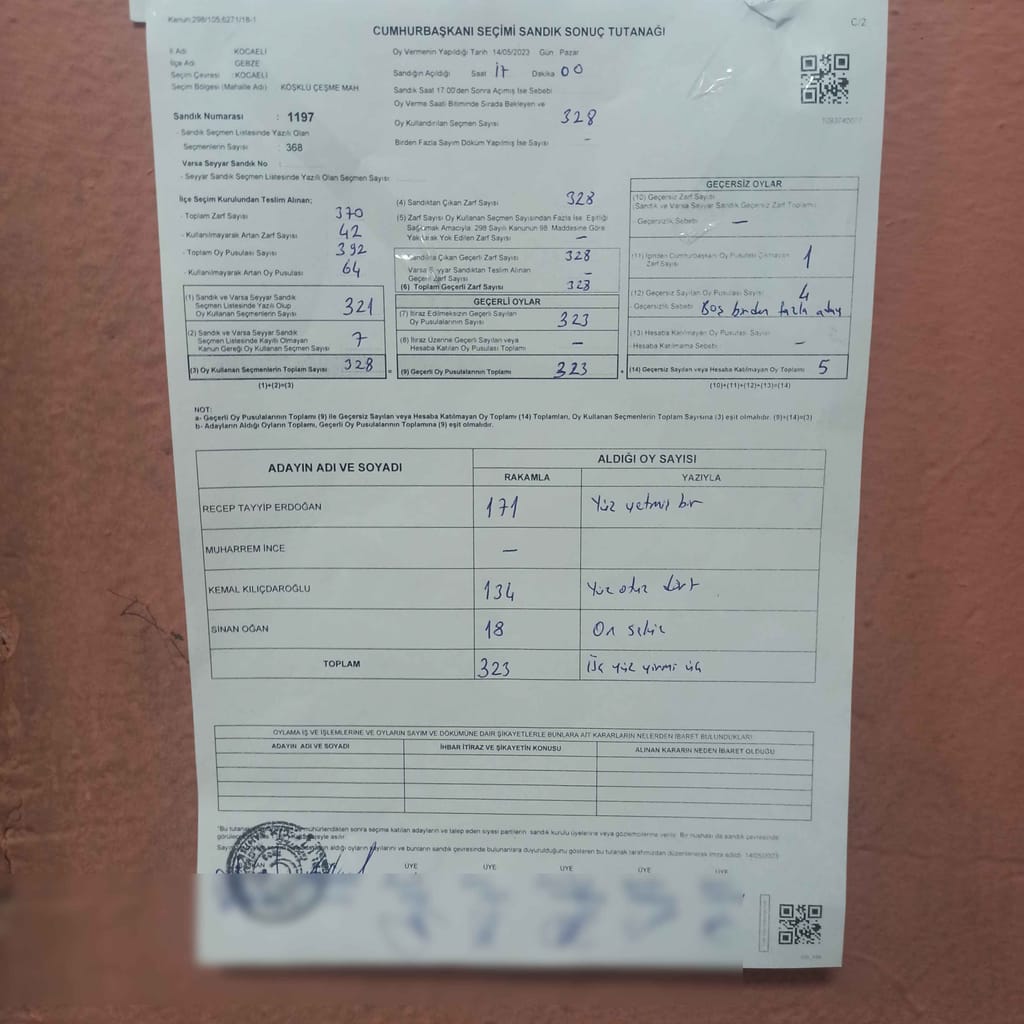 Kanun:298/105;6271/18-1
C/2
CUMHURBAŞKANI SEÇİMİ SANDIK SONUÇ TUTANAĞI
İl Adı KOCAELİ
İlçe Adı GEBZE
Seçim Çevresi : KOCAELİ
Seçim Bölgesi (Mahalle Adı) KÖŞKLÜ ÇEŞME MAH
Oy Vermenin Yapıldığı Tarih 14/05/2023 Gün : Pazar
Sandığın Açıldığı Saat 17 Dakika 00
Sandık Saat 17:00'den Sonra Açımış İse Sebebi
Oy Verme Saati Bitiminde Sırada Bekleyen ve
Oy Kullandırılan Seçmen Sayısı 328
Birden Fazla Sayım Döküm Yapılmış İse Sayısı -
Sandık Numarası : 1197
- Sandık Seçmen Listesinde Yazılı Olan
Seçmenlerin Sayısı : 368
Varsa Seyyar Sandık No
- Seyyar Sandık Seçmen Listesinde Yazılı Olan Seçmen Sayısı
İlçe Seçim Kurulundan Teslim Alınan;
- Toplam Zarf Sayısı 370
- Kullanılmayarak Artan Zarf Sayısı 42
- Toplam Oy Pusulası Sayısı 392
- Kullanılmayarak Artan Oy Pusulası 64
(1) Sandık ve Varsa Seyyar Sandık
Seçmen Listesinde Yazılı Olup
Oy Kullanan Seçmenlerin Sayısı 321
(2) Sandık ve Varsa Seyyar Sandık
Seçmen Listesinde Kayıtlı Olmayan
Kanun Gereği Oy Kullanan Seçmen Sayısı 7
(3) Oy Kullanan Seçmenlerin Toplam Sayısı 328
(1)+(2)=(3)
(4) Sandıktan Çıkan Zarf Sayısı 328
(5) Zarf Sayısı Oy Kullanan Seçmen Sayısından Fazla İse, Eşitliği
Sağlamak Amacıyla, 298 Sayılı Kanunun 98. Maddesine Göre
Yakılarak Yok Edilen Zarf Sayısı -
Sandıkta Çıkan Geçerli Zarf Sayısı 328
Varsa Seyyar Sandıktan Teslim Alınan
Geçerli Zarf Sayısı -
(6) Toplam Geçerli Zarf Sayısı 328
GEÇERLİ OYLAR
(7) İtiraz Edilmeksizin Geçerli Sayılan
Oy Pusulalarının Sayısı 323
(8) İtiraz Üzerine Geçerli Sayılan veya
Hesaba Katılan Oy Pusulası Toplamı -
(9) Geçerli Oy Pusulalarının Toplamı 323
GEÇERSİZ OYLAR
(10) Geçersiz Zarf Sayısı
(Sandık ve Varsa Seyyar Sandık Geçersiz Zarf Toplamı)
- Geçersizlik Sebebi -
(11) İçinden Cumhurbaşkanı Oy Pusulası Çıkmayan
Zarf Sayısı 1
(12) Geçersiz Sayılan Oy Pusulası Sayısı 4
- Geçersizlik Sebebi : Boş birden fazla aday
(13) Hesaba Katılmayan Oy Pusulası Sayısı
- Hesaba Katılmama Sebebi -
(14) Geçersiz Sayılan veya Hesaba Katılmayan Oy Toplamı 5
(10)+(11)+(12)+(13)=(14)
NOT:
a- Geçerli Oy Pusulalarının Toplamı (9) ile Geçersiz Sayılan veya Hesaba Katılmayan Oy Toplamı (14) Toplamları, Oy Kullanan Seçmenlerin Toplam Sayısına (3) eşit olmalıdır. (9)+(14)=(3)
b- Adayların Aldığı Oyların Toplamı, Geçerli Oy Pusulalarının Toplamına (9) eşit olmalıdır.
ADAYIN ADI VE SOYADI ALDIĞI OY SAYISI
RAKAMLA YAZIYLA
RECEP TAYYİP ERDOĞAN 171 Yüz yetmiş bir
MUHARREM İNCE -
KEMAL KILIÇDAROĞLU 134 Yüz otuz dört
SİNAN OĞAN 18 On sekiz
TOPLAM 323 Üç yüz yirmi üç
OYLAMA İŞ VE İŞLEMLERİNE VE OYLARIN SAYIM VE DÖKÜMÜNE DAİR ŞİKAYETLERLE BUNLARA AİT KARARLARIN NELERDEN İBARET BULUNDUKLARI
ADAYIN ADI VE SOYADI İHBAR İTİRAZ VE ŞİKAYETİN KONUSU ALINAN KARARIN NEDEN İBARET OLDUĞU
mühürlendikten sonra seçime katılan adayların ve talep eden siyasi partilerin sandık kurulu üyelerine veya gözlemcilerine verilir. Bir nüshası da sandık çevresinde
asılır.
aldığı oyların sayılarını ve bunların sandık çevresinde bulunanlara duyurulduğunu gösteren bu tutanak tarafımızdan düzenlenerek imza edildi. 14/05/2023
ÜYE ÜYE ÜYE ÜYE ÜYE